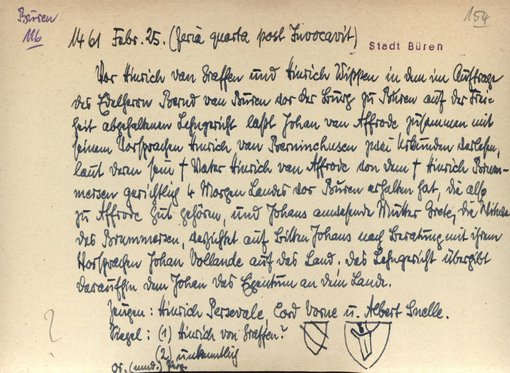 Büren
116
154
1461 Febr. 25. (feria quarta post Invocavit)
Stadt Büren
Vor Hinrich van Graffen und Hinrich Wippen in dem im Auftrage
des Edelherrn Bernd van Büren vor der Burg zu Büren auf der Frei-
heit abgehaltenen Lehngericht läßt Johan van Affrode zusammen mit
seinem Vorsprachen Hinrich van Berninchusen zwei Urkunden verlesen,
laut deren sein † Vater Hinrich van Affrode von dem † Hinrich Brum-
mersen gerichtlich 4 Morgen Landes vor Büren erhalten hat, die also
zu Affrode Gut gehören, und Johans anwesende Mutter Grete, die Witwe
des Brummersen, verzichtet auf Bitten Johans nach Beratung mit ihrem
Vorsprachen Johan Vollande auf das Land. Das Lehngericht übergibt
daraufhin dem Johan das Eigentum an dem Lande.
Zeugen: Hinrich Persevale, Cord Vorne u. Albert Snelle.
Siegel: (1) Hinrich von Graffen?
(2) unkenntlich
Or. (mund.) Perg.